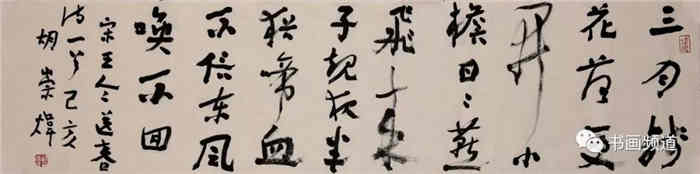 三月残
花落更
開小
檐日日燕
飛来
子規夜半
猶啼血
不信东風
唤不回
宋王令送春
诗一首己亥
胡崇煒
书画频道